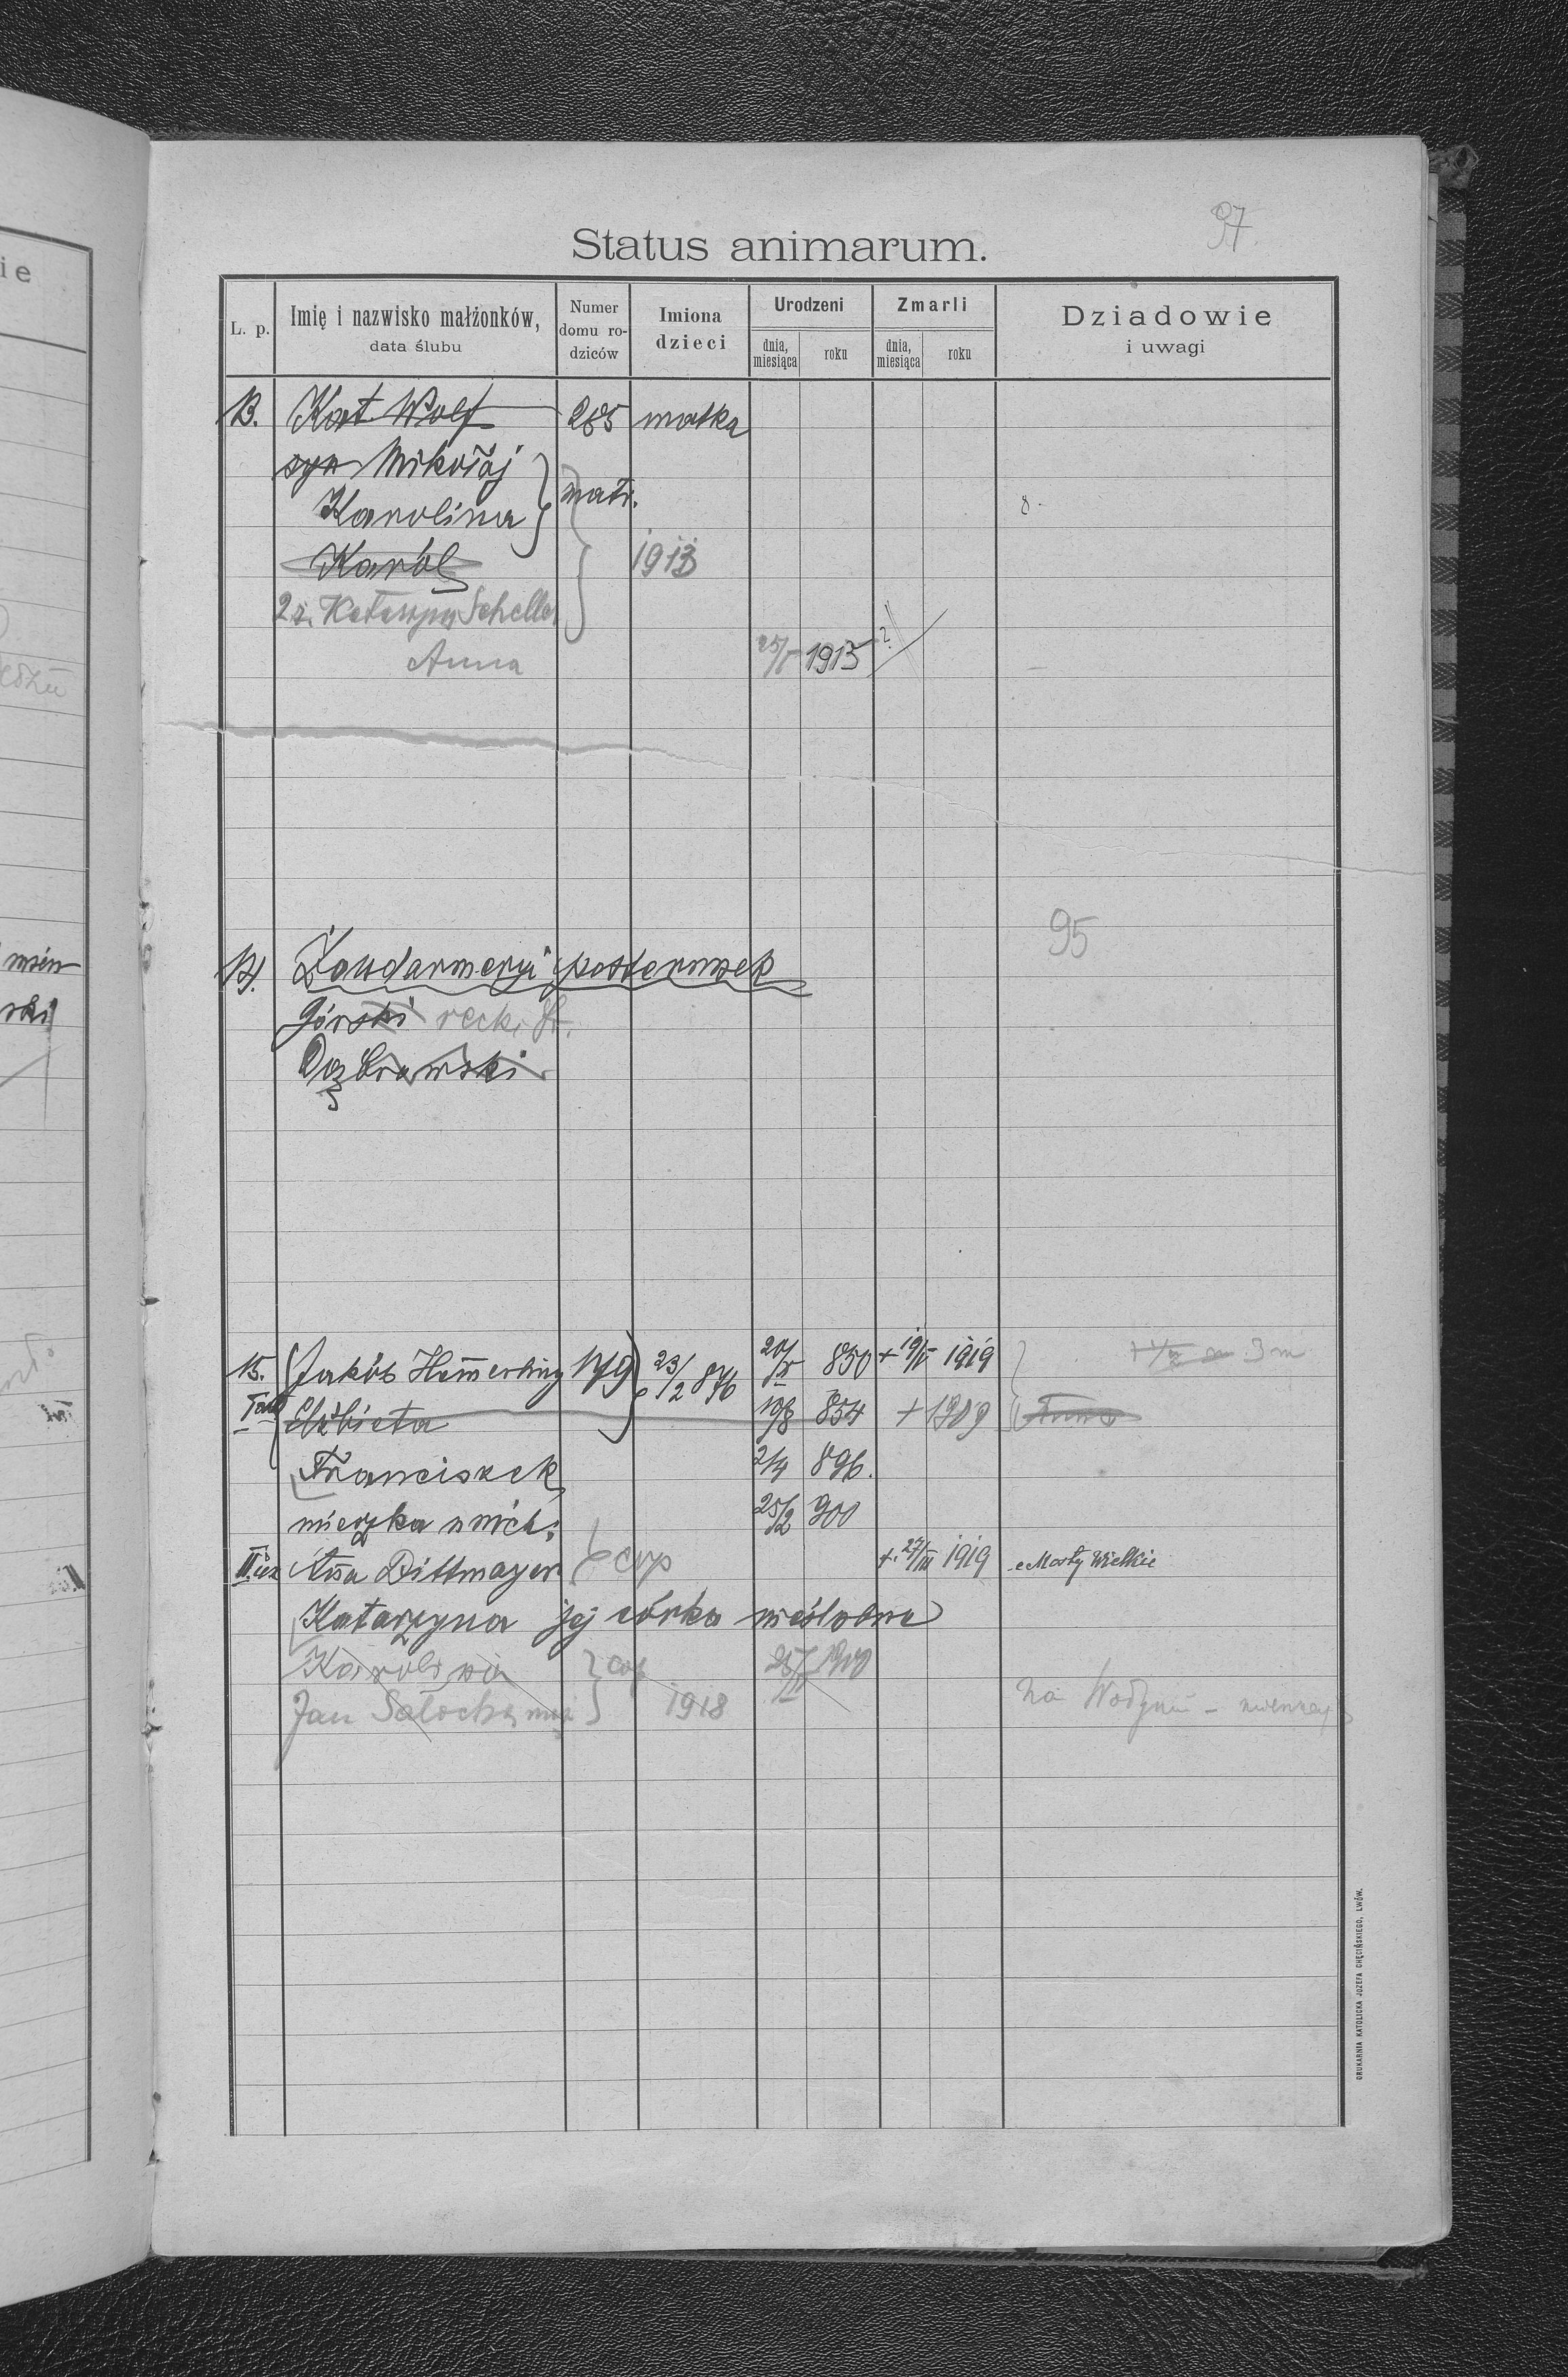 97.
Status animarum.
L. p. Imię i nazwisko małżonków, data ślubu Numer domu rodziców Imiona dzieci Urodzeni dnia, miesiąca roku Zmarli dnia, miesiąca roku Dziadowie i uwagi
13. Kat. Wolf 285 matka
syn Mikołaj
Karolina
Karól 1913
2 ż. Katarzyna Scheller
Anna 25/V 1915 ?
95
14. Żandarmeryi posterunek
Górski
Dąbrowski
15. Jakób Hem̄erling 179 23/2 876 20/V 850 + 19/V 1919
Elżbieta 19/8 854 + 1909
Franciszek 2/4 896.
mieszka u nich: 25/2 900
II. An̄a Dittmayer cop +. 27/III 1919 Mosty Wielkie
Katarzyna jej córka nieślubna
Karolina cop
Jan 1918 na Wołyniu -
DRUKARNIA KATOLICKA JÓZEFA CHĘCIŃSKIEGO, LWÓW.